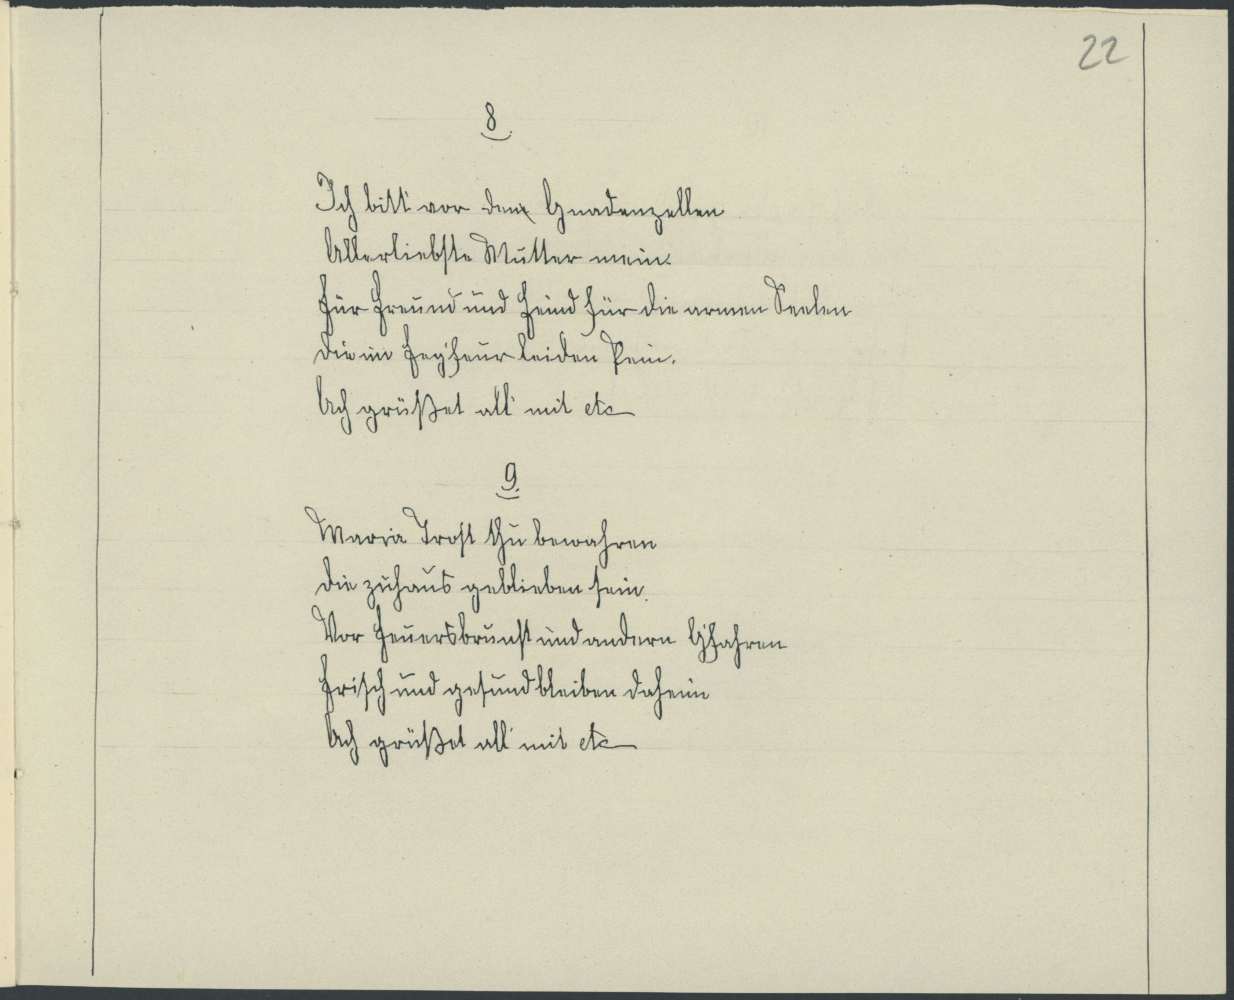 22
8.
Ich bitt' vor den Gnadenzellen
Allerliebste Mutter mein.
Für Freund und Feind für die armen Seelen
die im Fegfeur leiden Pein.
Ach grüßet all' mit etc
9.
Maria Trost thu bewahren
die zuhaus geblieben sein.
Vor Feuersbrunst und andern G'fahren
Frisch und gesund bleiben daheim
Ach grüßet all' mit etc